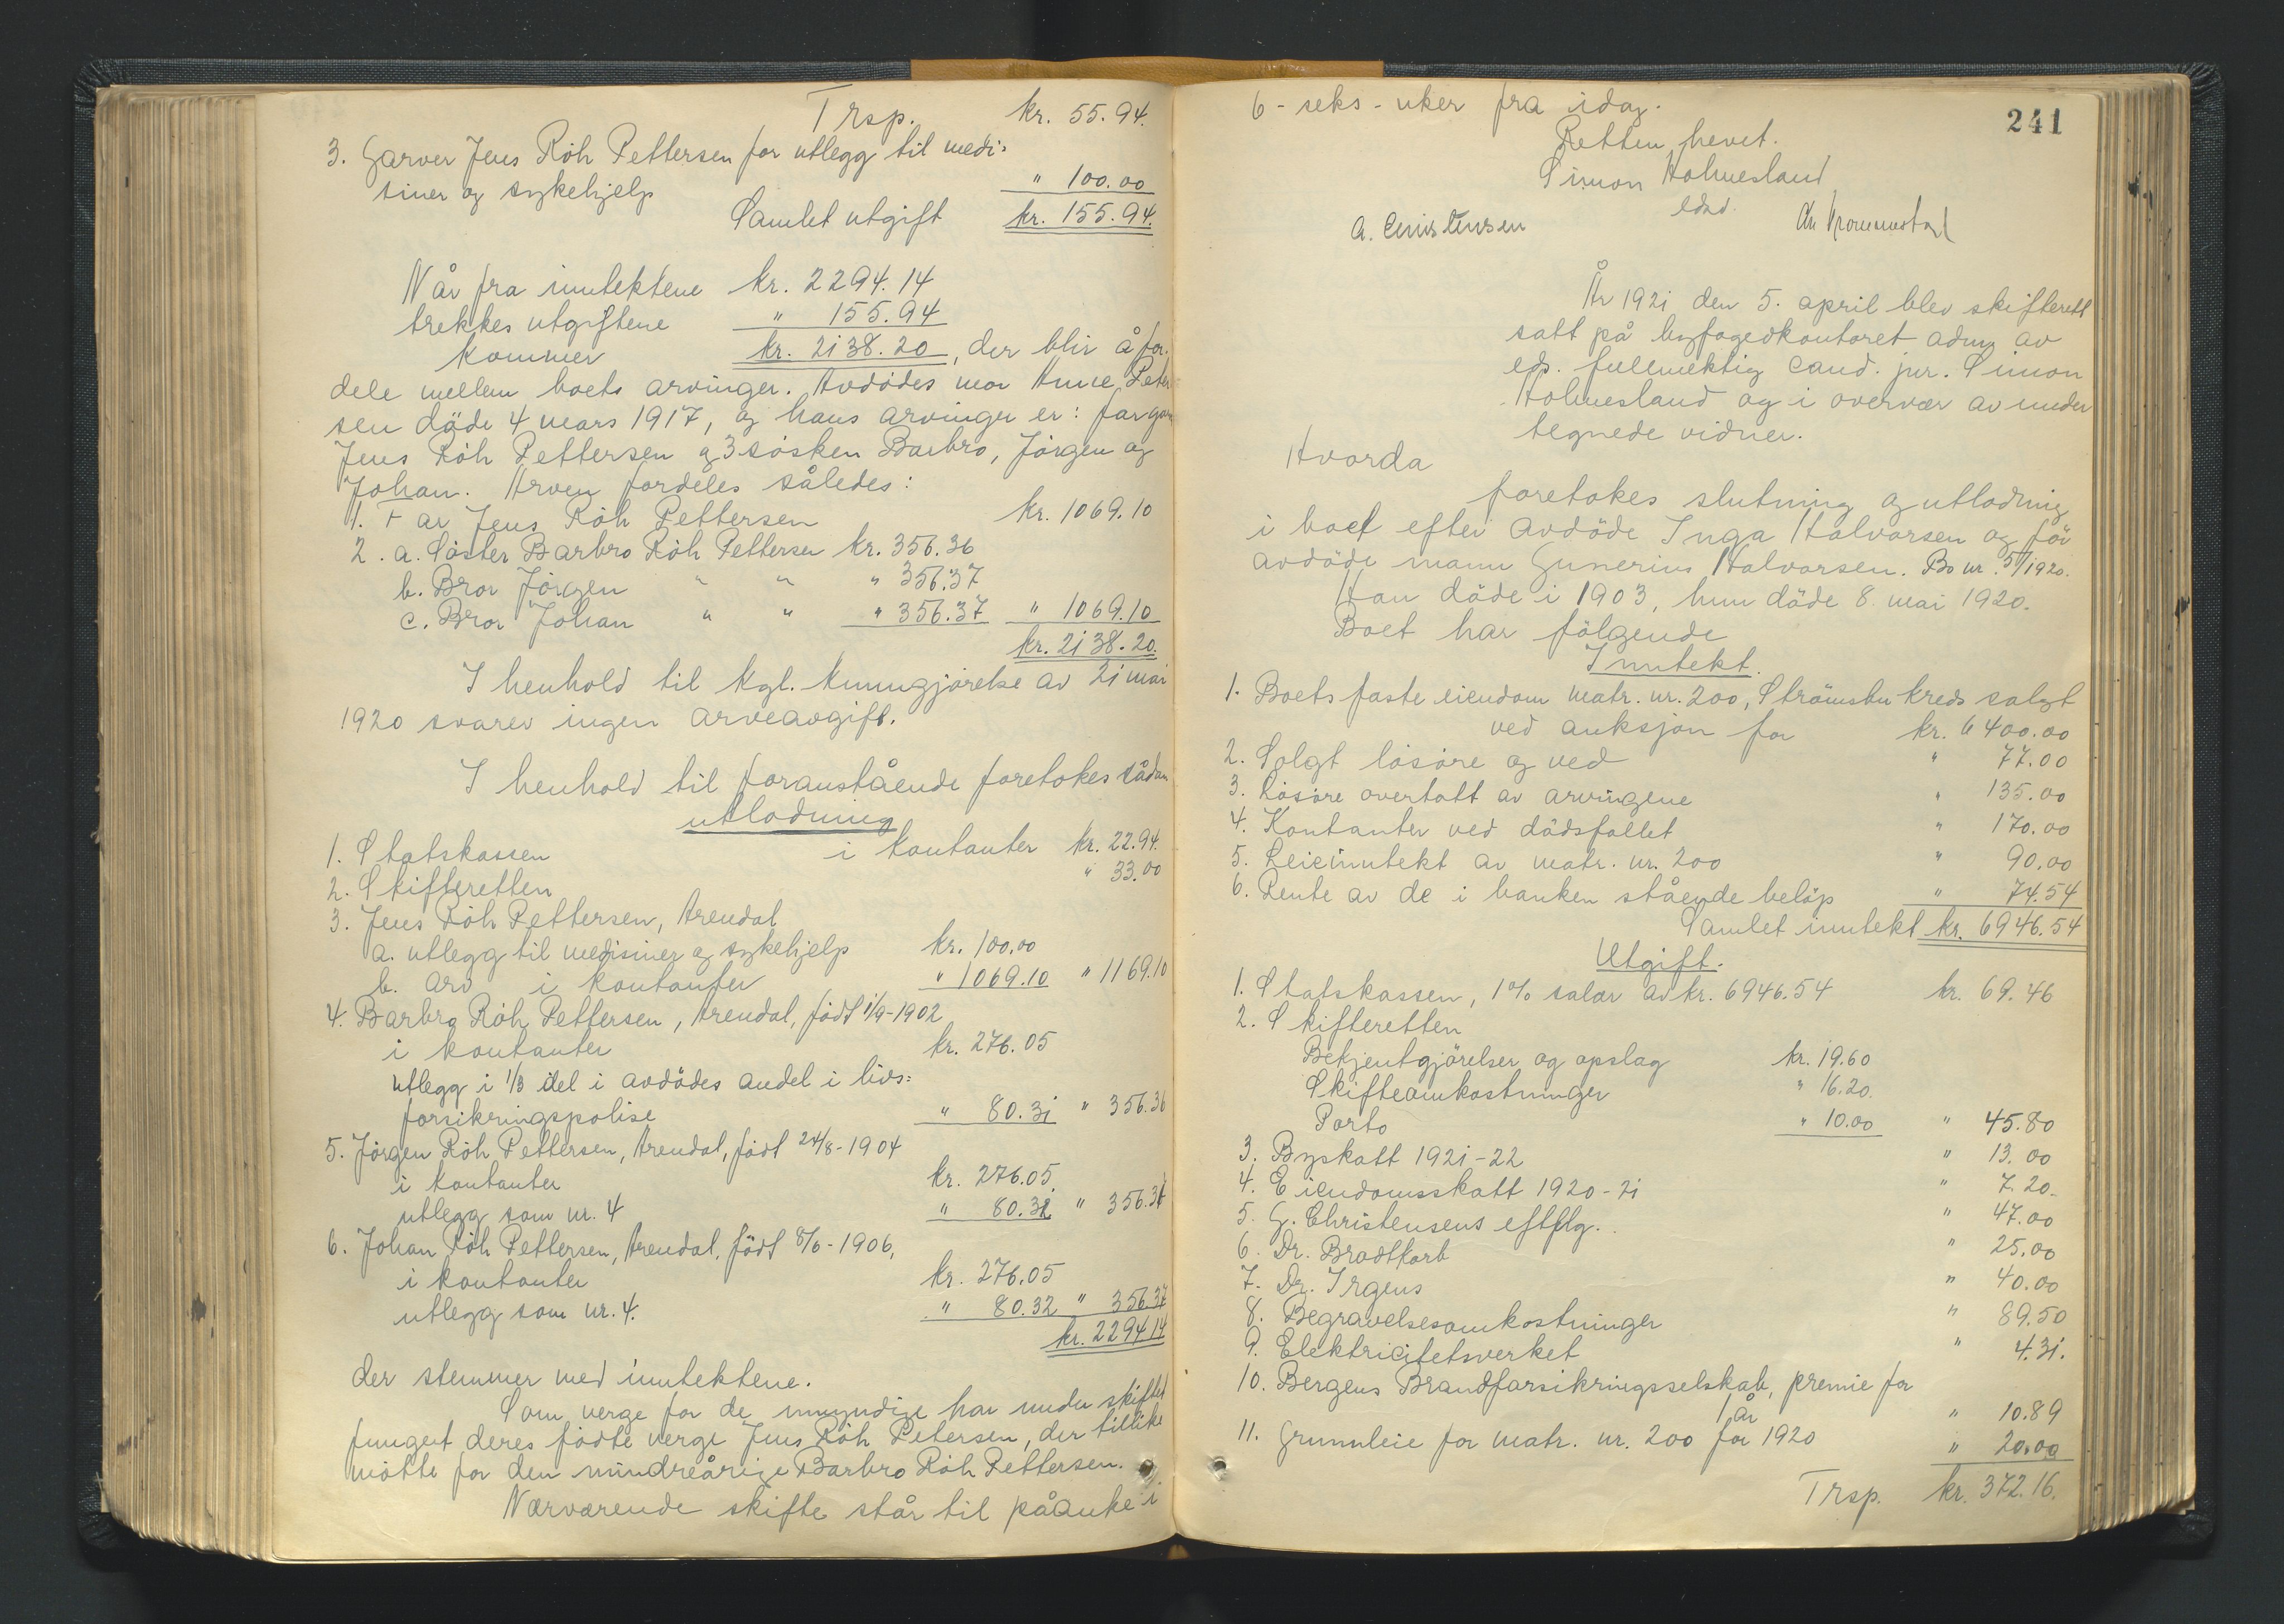 Trsp. kr. 55.94.
3. Garver Jens Röh Pettersen for utlegg til medi=
siner og sykehjelp " 100.00
Samlet utgift kr. 155.94.
Når fra inntektene kr. 2294.14
trekkes utgiftene " 155.94
kommer kr. 2138.20, der blir å for-
dele mellem boets arvinger. Avdödes mor Anne Peter
sen döde 4 mars 1917, og hans arvinger er: far gar
Jens Röh Pettersen og 3 sösken Barbro, Jörgen og
Johan. Arven fordeles således:
1. Far Jens Röh Pettersen kr. 1069.10
2. a. Söster Barbro Röh Pettersen kr. 356.36
b. Bror Jörgen " " " 356.37
c. Bror Johan " " " 356.37 " 1069.10
kr. 2138.20.
I henhold til kgl. kunngjörelse av 21 mai
1920 svares ingen arveavgift.
I henhold til foranstående foretokes sådan
utlodning
1. Statskassen i kontanter kr. 22.94.
2. Skifteretten " 33.00
3. Jens Röh Pettersen, Arendal
a. utlegg til medisiner og sykehjelp kr. 100.00
b. arv i kontanter " 1069.10 " 1169.10
4. Barbro Röh Pettersen, Arendal, födt 1/9-1902
i kontanter kr. 276.05
utlegg i 1/3 del i avdödes andel i livs=
forsikringspolise " 80.31 " 356.36
5. Jörgen Röh Pettersen, Arendal, födt 24/8-1904
i kontanter kr. 276.05.
utlegg som nr. 4 " 80.32 " 356.37
6. Johan Röh Pettersen, Arendal, födt 8/6-1906,
i kontanter kr. 276.05
utlegg som nr. 4. " 80.32 " 356.37
kr. 2294.14
der stemmer med inntektene.
Som verge for de umyndige har under skiftet
fungert deres födte verge Jens Röh Petersen, der tillike
mötte for den mindreårige Barbro Röh Pettersen.
Nærværende skifte står til påanke i
6 - seks - uker fra idag.
241
Retten hevet.
Simon Holmesland
edsd.
A. Christensen
År 1921 den 5. april blev skifterett
satt på byfogedkontoret adm. av
eds. fullmektig cand. jur. Simon
Holmesland og i overvær av under
tegnede vidner.
Hvorda
foretokes slutning og utlodning
i boet efter avdöde Inga Halvorsen og för
avdöde mann Gunerius Halvorsen. Bo nr. 5/1920.
Han döde i 1903, hun döde 8. mai 1920.
Boet har fölgende
Inntekt.
1. Boets faste eiendom matr. nr. 200, Strömsbu kreds solgt
ved auksjon for kr. 6400.00
2. Solgt lösöre og ved " 77.00
3. Lösöre overtatt av arvingene " 135.00
4. Kontanter ved dödsfallet " 170.00
5. Leieinntekt av matr. nr. 200 " 90.00
6. Rente av de i banken stående belöp " 74.54
Samlet inntekt kr. 6946.54
Utgift.
1. Statskassen, 1% salær av kr. 6946.54 kr. 69.46
2. Skifteretten
Bekjentgjörelser og opslag kr. 19.60
Skifteomkostninger " 16.20.
Porto " 10.00 " 45.80
3. Byskatt 1921-22 " 13.00
4. Eiendomsskatt 1920-21 " 7.20.
5. G. Christensens eftflg. " 47.00
6. Dr. Brodtkorb " 25.00
7. Dr. Irgens " 40.00
8. Begravelsesomkostninger " 89.50
9. Elektricitetsverket " 4.31.
10. Bergens Brandforsikringsselskab, premie for
1 år " 10.89
11. Grunnleie for matr. nr. 200 for 1920 " 20.00
Trsp. kr. 372.16.